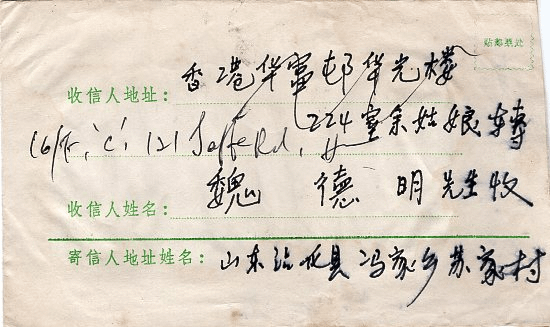 贴邮票处
香港华富邨华光楼
收信人地址：
224室余姑娘转
16/F, 'C', 121 Jaffe Rd, H
魏德明先生收
收信人姓名：
寄信人地址姓名：山东沾化县冯家乡苏家村